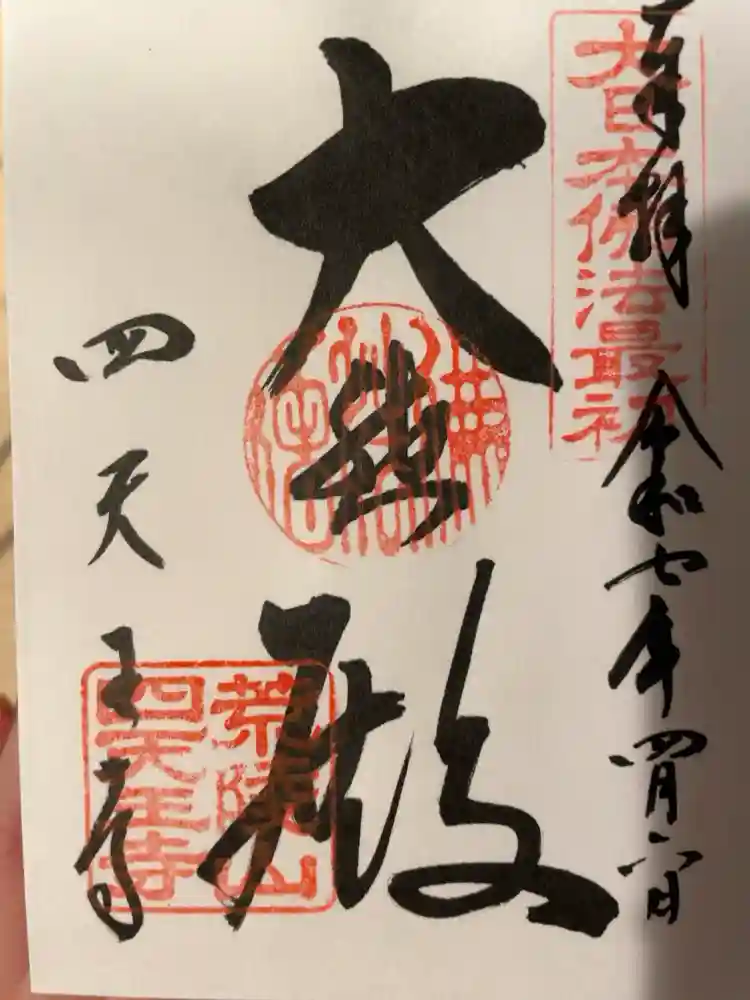 大日本佛法最初
奉拝 令和七年四月六日
大悲殿
四天王寺
荒陵山
四天王寺